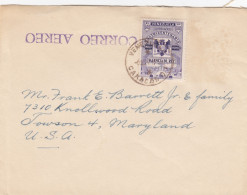 CORREO AEREO
VENEZUELA
Mr. Frank E. Barrett Jr. & family
7310 Knollwood Road
Towson 4, Maryland
U.S.A.